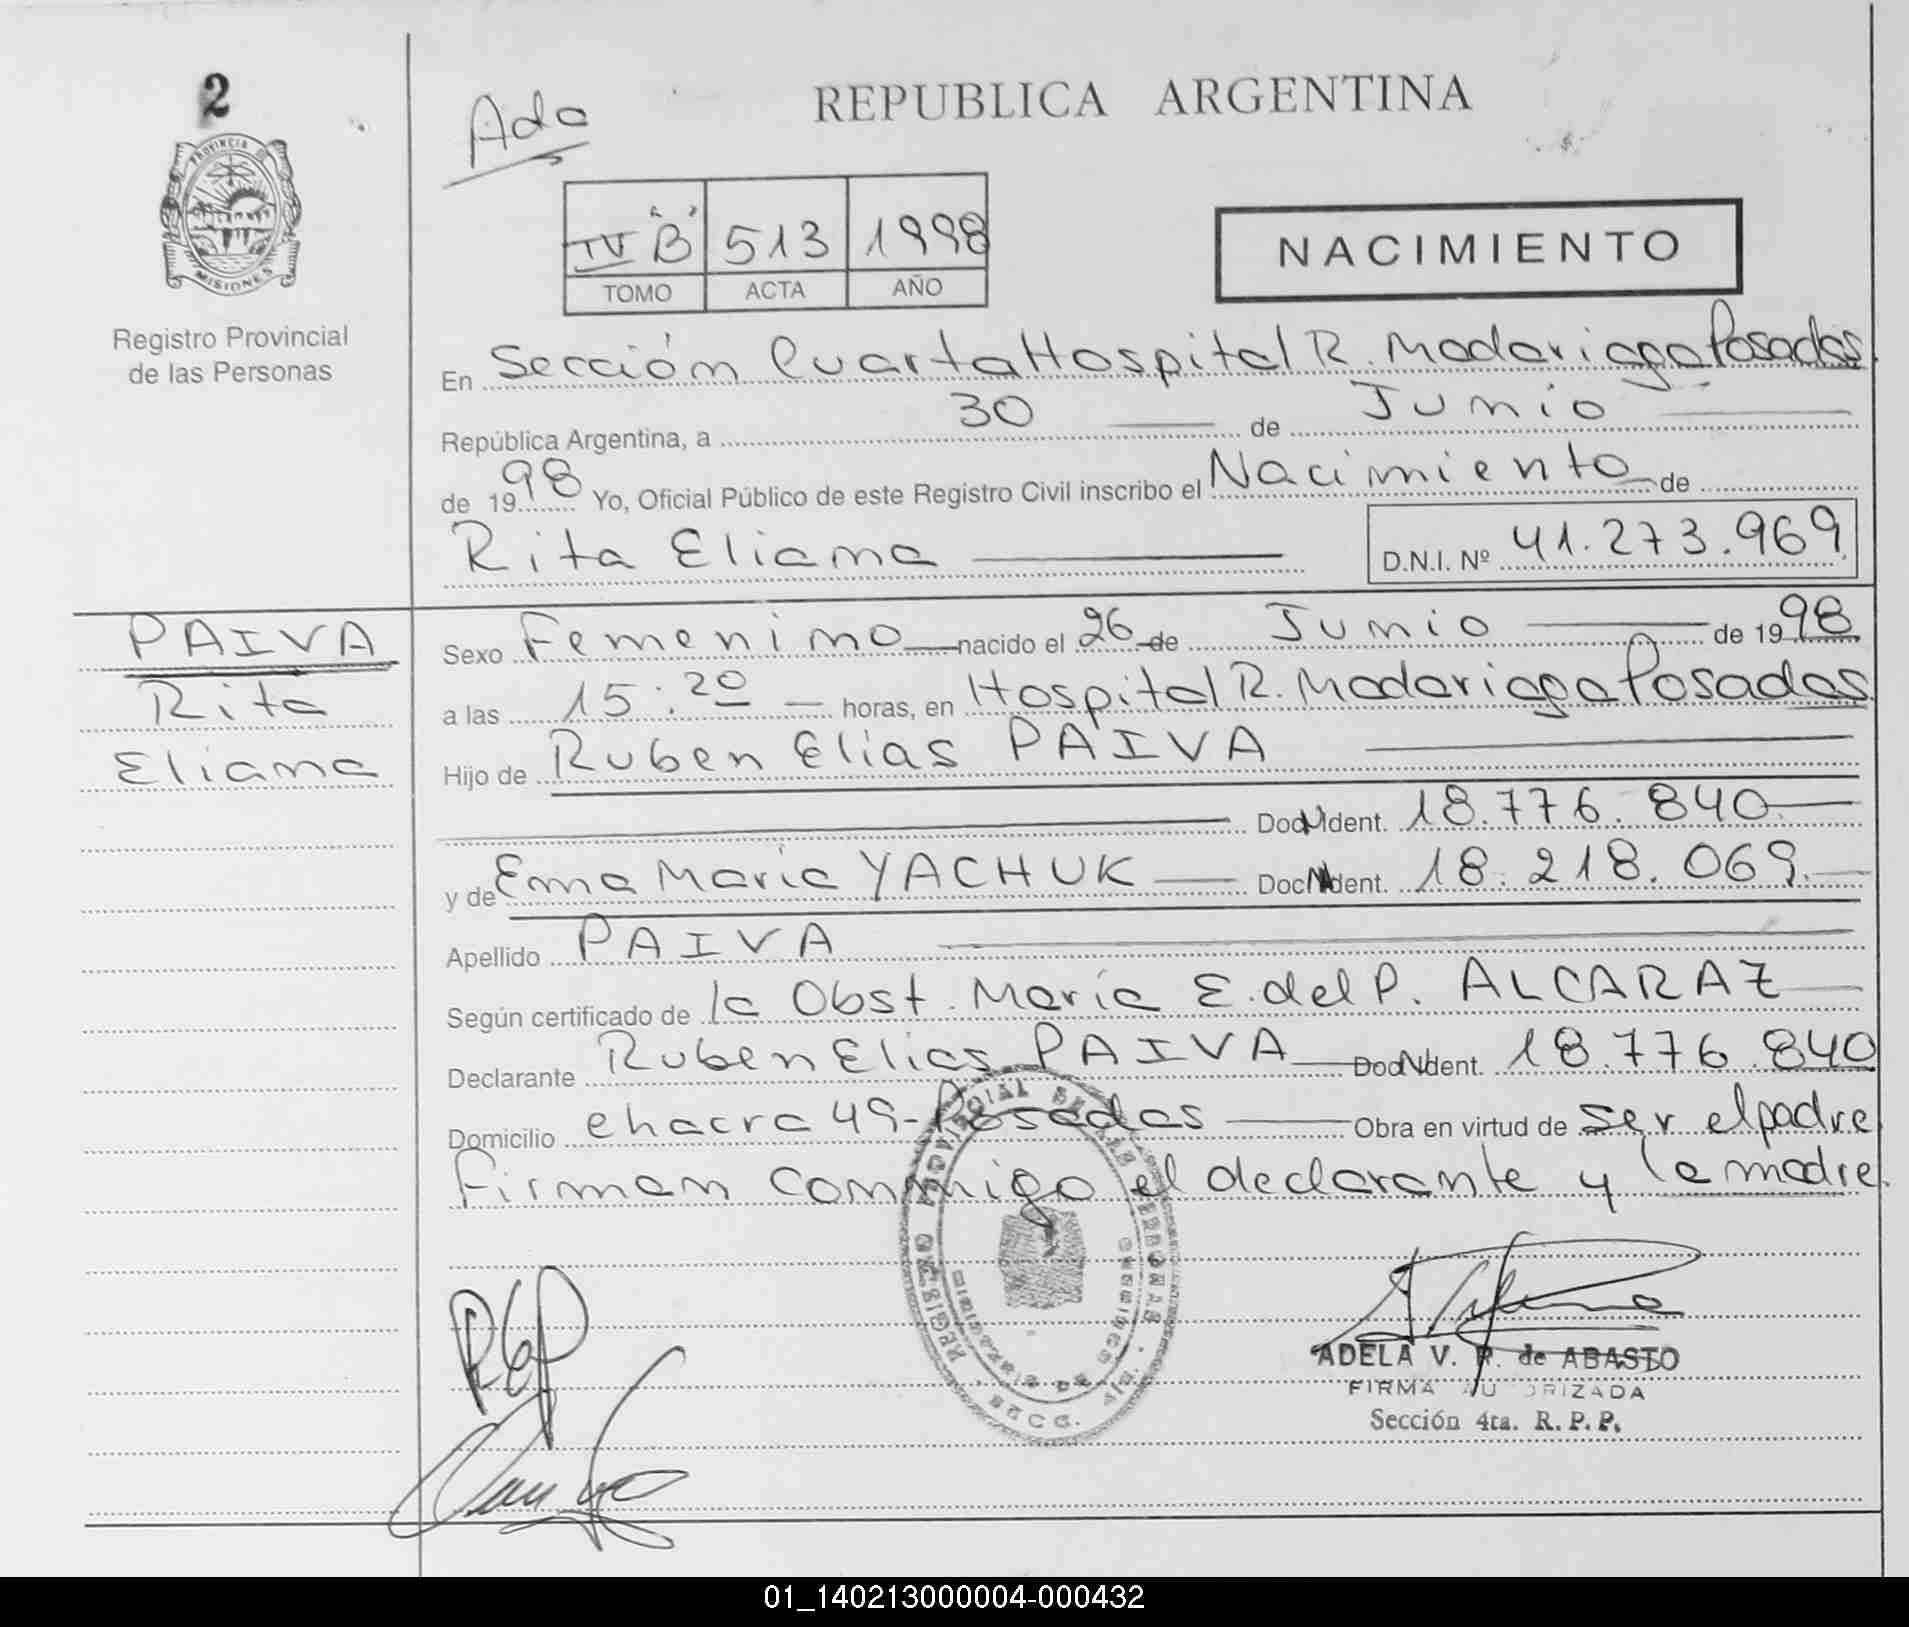 2
Ada
REPUBLICA ARGENTINA
PROVINCIA DE
MISIONES
Registro Provincial
de las Personas
IV "B" 513 1998
TOMO ACTA AÑO
NACIMIENTO
En Sección Cuarta Hospital R. Madariaga Posadas
República Argentina, a 30 de Junio
de 1998 Yo, Oficial Público de este Registro Civil inscribo el Nacimiento de
Rita Eliana D.N.I. Nº 41.273.969
PAIVA
Rita
Eliana
Sexo Femenino nacido el 26 de Junio de 1998
a las 15:20 horas, en Hospital R. Madariaga Posadas
Hijo de Ruben Elias PAIVA
Doc. Ident. 18.776.840
y de Ema Maria YACHUK Doc. Ident. 18.218.069
Apellido PAIVA
Según certificado de la Obst. María E. del P. ALCARAZ
Declarante Ruben Elias PAIVA Doc. Ident. 18.776.840
Domicilio chacra 49-Posadas Obra en virtud de ser el padre
Firman conmigo el declarante y la madre.
REGISTRO PROVINCIAL DE LAS PERSONAS
ADELA V. R. de ABASTO
FIRMA AUTORIZADA
Sección 4ta. R. P. P.
01_140213000004-000432